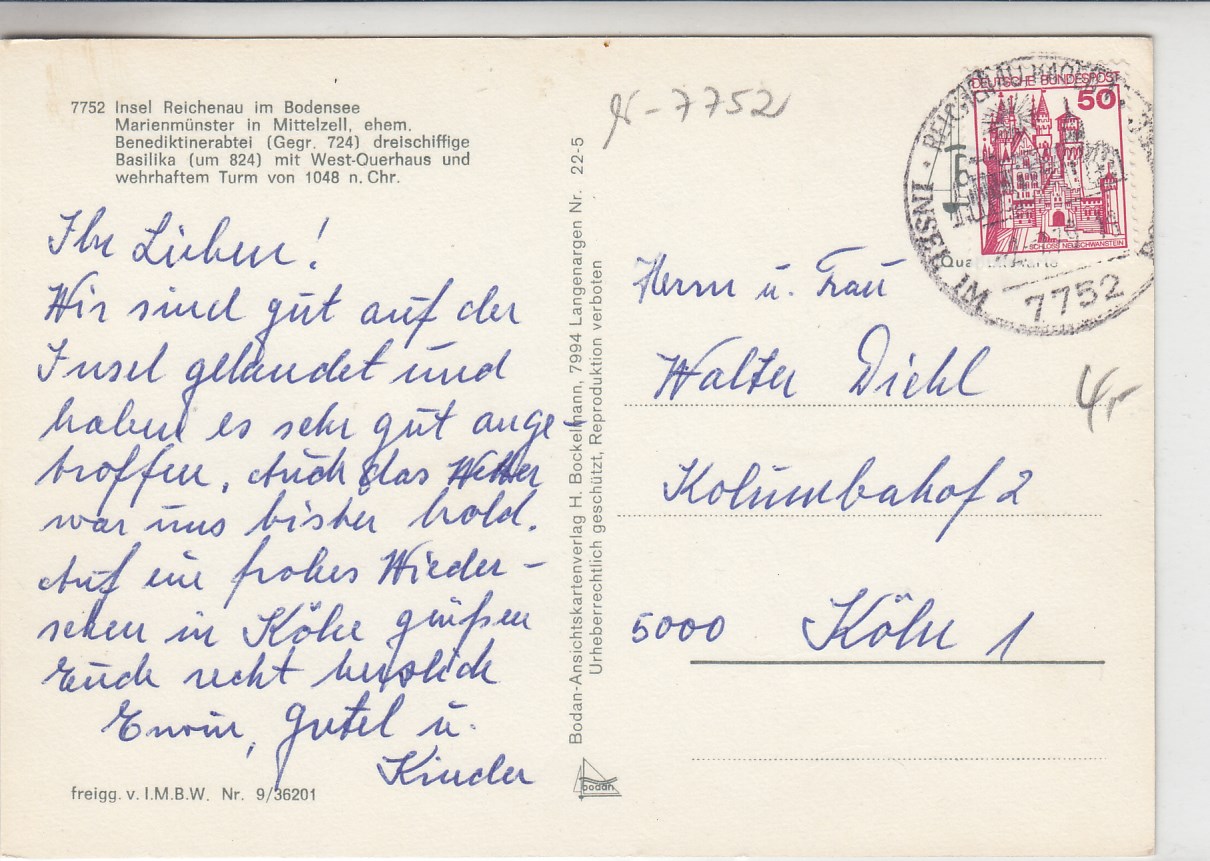 7752 Insel Reichenau im Bodensee
Marienmünster in Mittelzell, ehem.
Benediktinerabtei (Gegr. 724) dreischiffige
Basilika (um 824) mit West-Querhaus und
wehrhaftem Turm von 1048 n. Chr.
Ihr Lieben!
Wir sind gut auf der
Insel gelandet und
haben es sehr gut ange-
troffen. Auch das Wetter
war uns bisher hold.
Auf ein frohes Wieder-
sehen in Köln grüßen
Euch recht herzlich
Erwin, Gretel u.
Kinder
freigg. v. I.M.B.W. Nr. 9/36201
Bodan-Ansichtskartenverlag H. Bockelmann, 7994 Langenargen Nr. 22-5
Urheberrechtlich geschützt, Reproduktion verboten
bodan
-7752
DEUTSCHE BUNDESPOST
50
SCHLOSS NEUSCHWANSTEIN
INSEL REICHENAU
IM
7752
Herrn u. Frau
Walter Diehl
Kolumbahof 2
5000 Köln 1